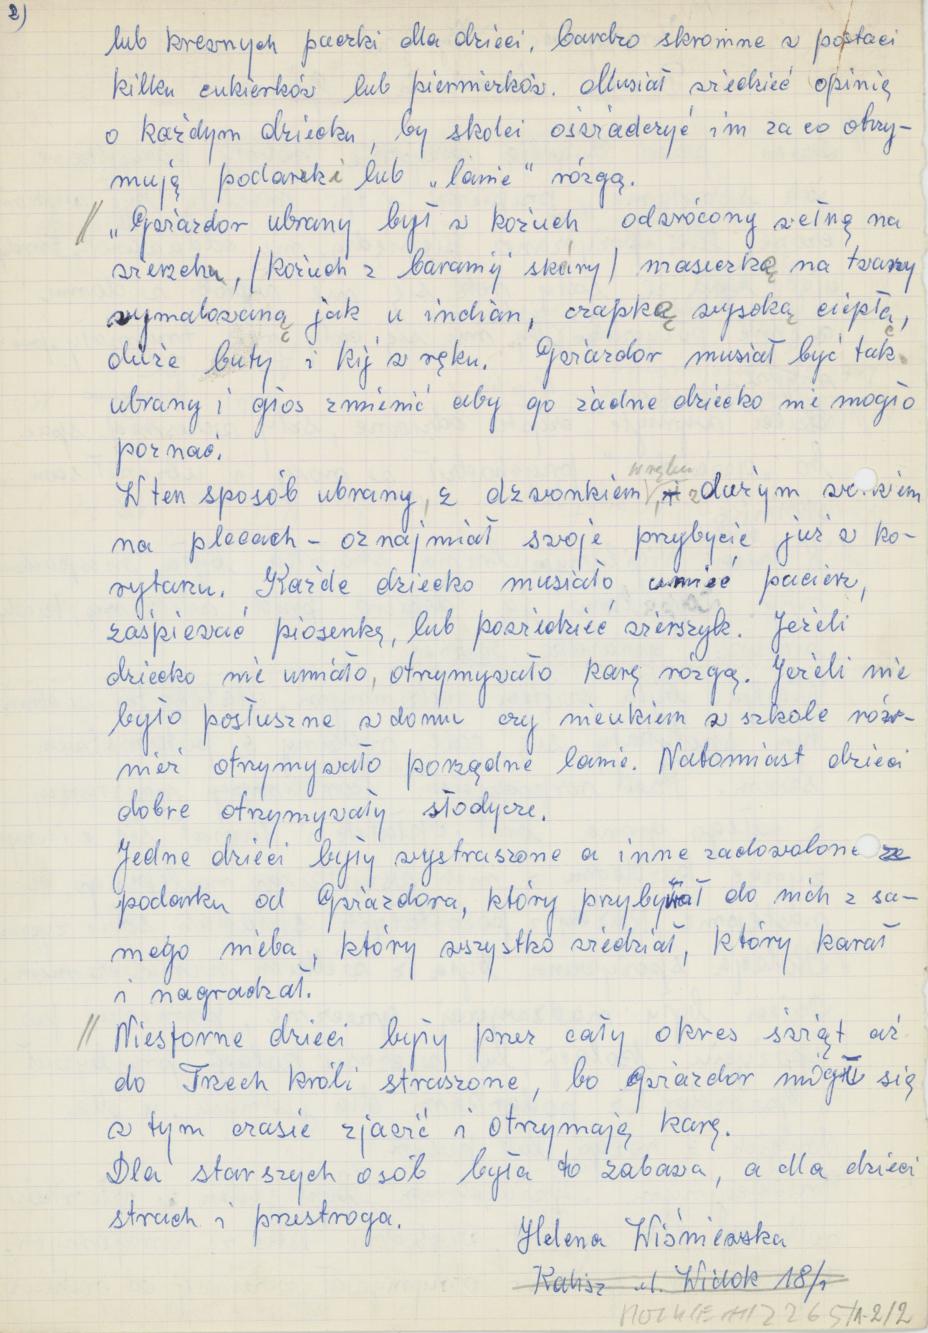 2)
lub krewnych paczki dla dzieci, bardzo skromne w postaci
kilku cukierków lub pierników. Musiał wiedzieć opinię
o każdym dziecku, by skolei oświadczyć im za co otrzy-
mują podarek lub „lanie" rózgą.
// „Gwiazdor ubrany był w kożuch odwrócony wełną na
wierzchu, /kożuch z baraniij skóry/ maseczką na twarzy
wymalowaną jak u indian, czapkę wysoką ciepłą,
duże buty i kij w ręku. Gwiazdor musiał być tak
ubrany i głos zmienić aby go żadne dziecko nie mogło
poznać.
W ten sposób ubrany, z dzwonkiem w ręku i z dużym workiem
na plecach – oznajmiał swoje przybycie już w ko-
rytarzu. Każde dziecko musiało umieć pacierz,
zaśpiewać piosenkę, lub powiedzieć wierszyk. Jeżeli
dziecko nie umiało, otrzymywało karę rózgą. Jeżeli nie
było posłuszne w domu czy nieukiem w szkole rów-
nież otrzymywało porządne lanie. Natomiast dzieci
dobre otrzymywały słodycze.
Jedne dzieci były wystraszone a inne zadowolone ze
podarku od Gwiazdora, który przybywał do nich z sa-
mego nieba, który wszystko wiedział, który karał
i nagradzał.
// Niesforne dzieci były przez cały okres świąt aż
do Trzech Króli straszone, bo gwiazdor mógł się
w tym czasie zjawić i otrzymają karę.
Dla starszych osób była to zabawa, a dla dzieci
strach i przestroga.
Helena Wiśniewska
Kalisz ul. Widok 18/1